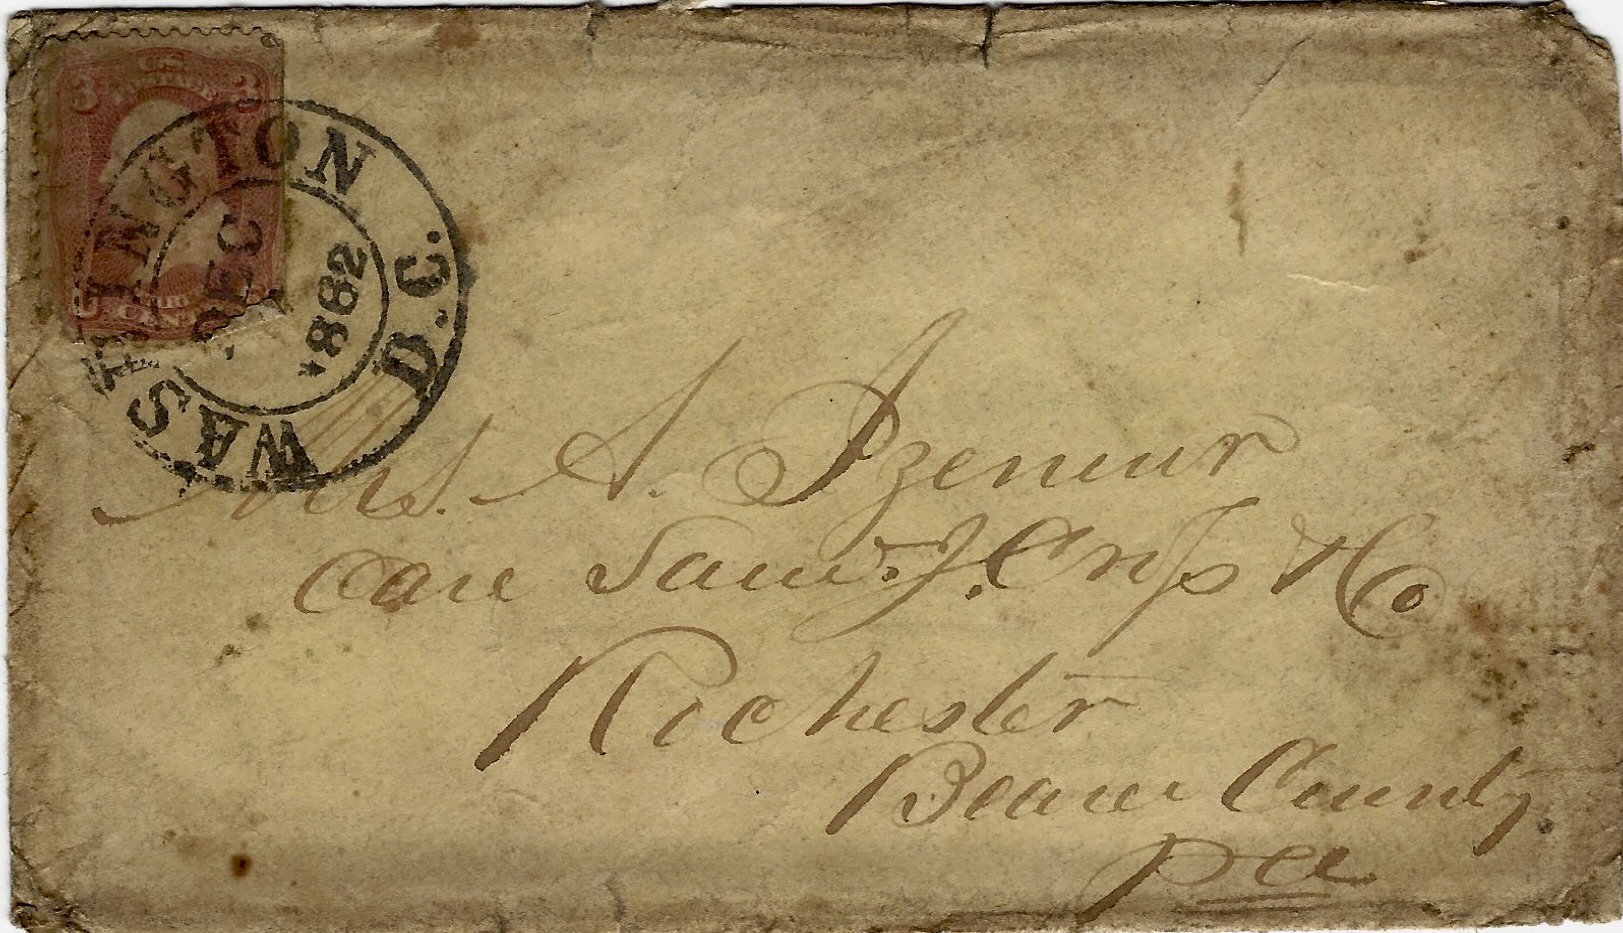 U.S.
POSTAGE
3 3
CENTS
WASHINGTON D.C.
DEC
1862
Mrs. A. Izenour
Care Saml. J. Cross & Co
Rochester
Beaver County
Pa